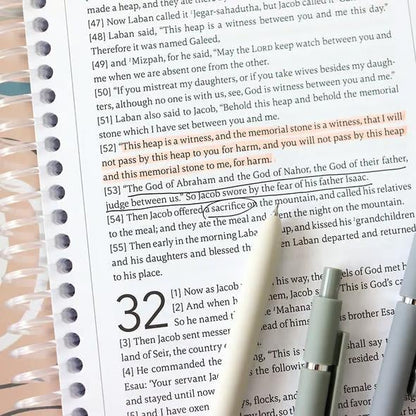 made a heap, and they ate there by
[47] Now Laban called it Jegar-sahadutha, but Jacob called it
[48] Laban said, "This heap is a witness between you and me this day."
Therefore it was named Galeed.
[49] and Mizpah, for he said, "May the LORD keep watch between you and
me when we are absent one from the other.
[50] "If you mistreat my daughters, or if you take wives besides my daugh-
ters, although no one is with us, see, God is witness between you and me."
[51] Laban also said to Jacob, "Behold this heap and behold the memorial
stone which I have set between you and me.
[52] "This heap is a witness, and the memorial stone is a witness, that I will
not pass by this heap to you for harm, and you will not pass by this heap
and this memorial stone to me, for harm.
[53] "The God of Abraham and the God of Nahor, the God of their father,
judge between us." So Jacob swore by the fear of his father Isaac.
[54] Then Jacob offered a sacrifice on the mountain, and called his relatives
to the meal; and they ate the meal and spent the night on the mountain.
[55] Then early in the morning Laban up, and kissed his grandchildren
and his daughters and blessed then Laban departed and returned
to his place.
32
[1] Now as Jacob his way, the angels of God met
[2] And when he them, Jacob "This is God's
So he named Mahan
[3] Then Jacob sent messen head of him his brother Esau
land of Seir, the country
[4] He commanded the "This shall say
Esau: 'Your servant Jac resided
and stayed until now and favor
[5] and I have oxen flocks, and
my lord, so